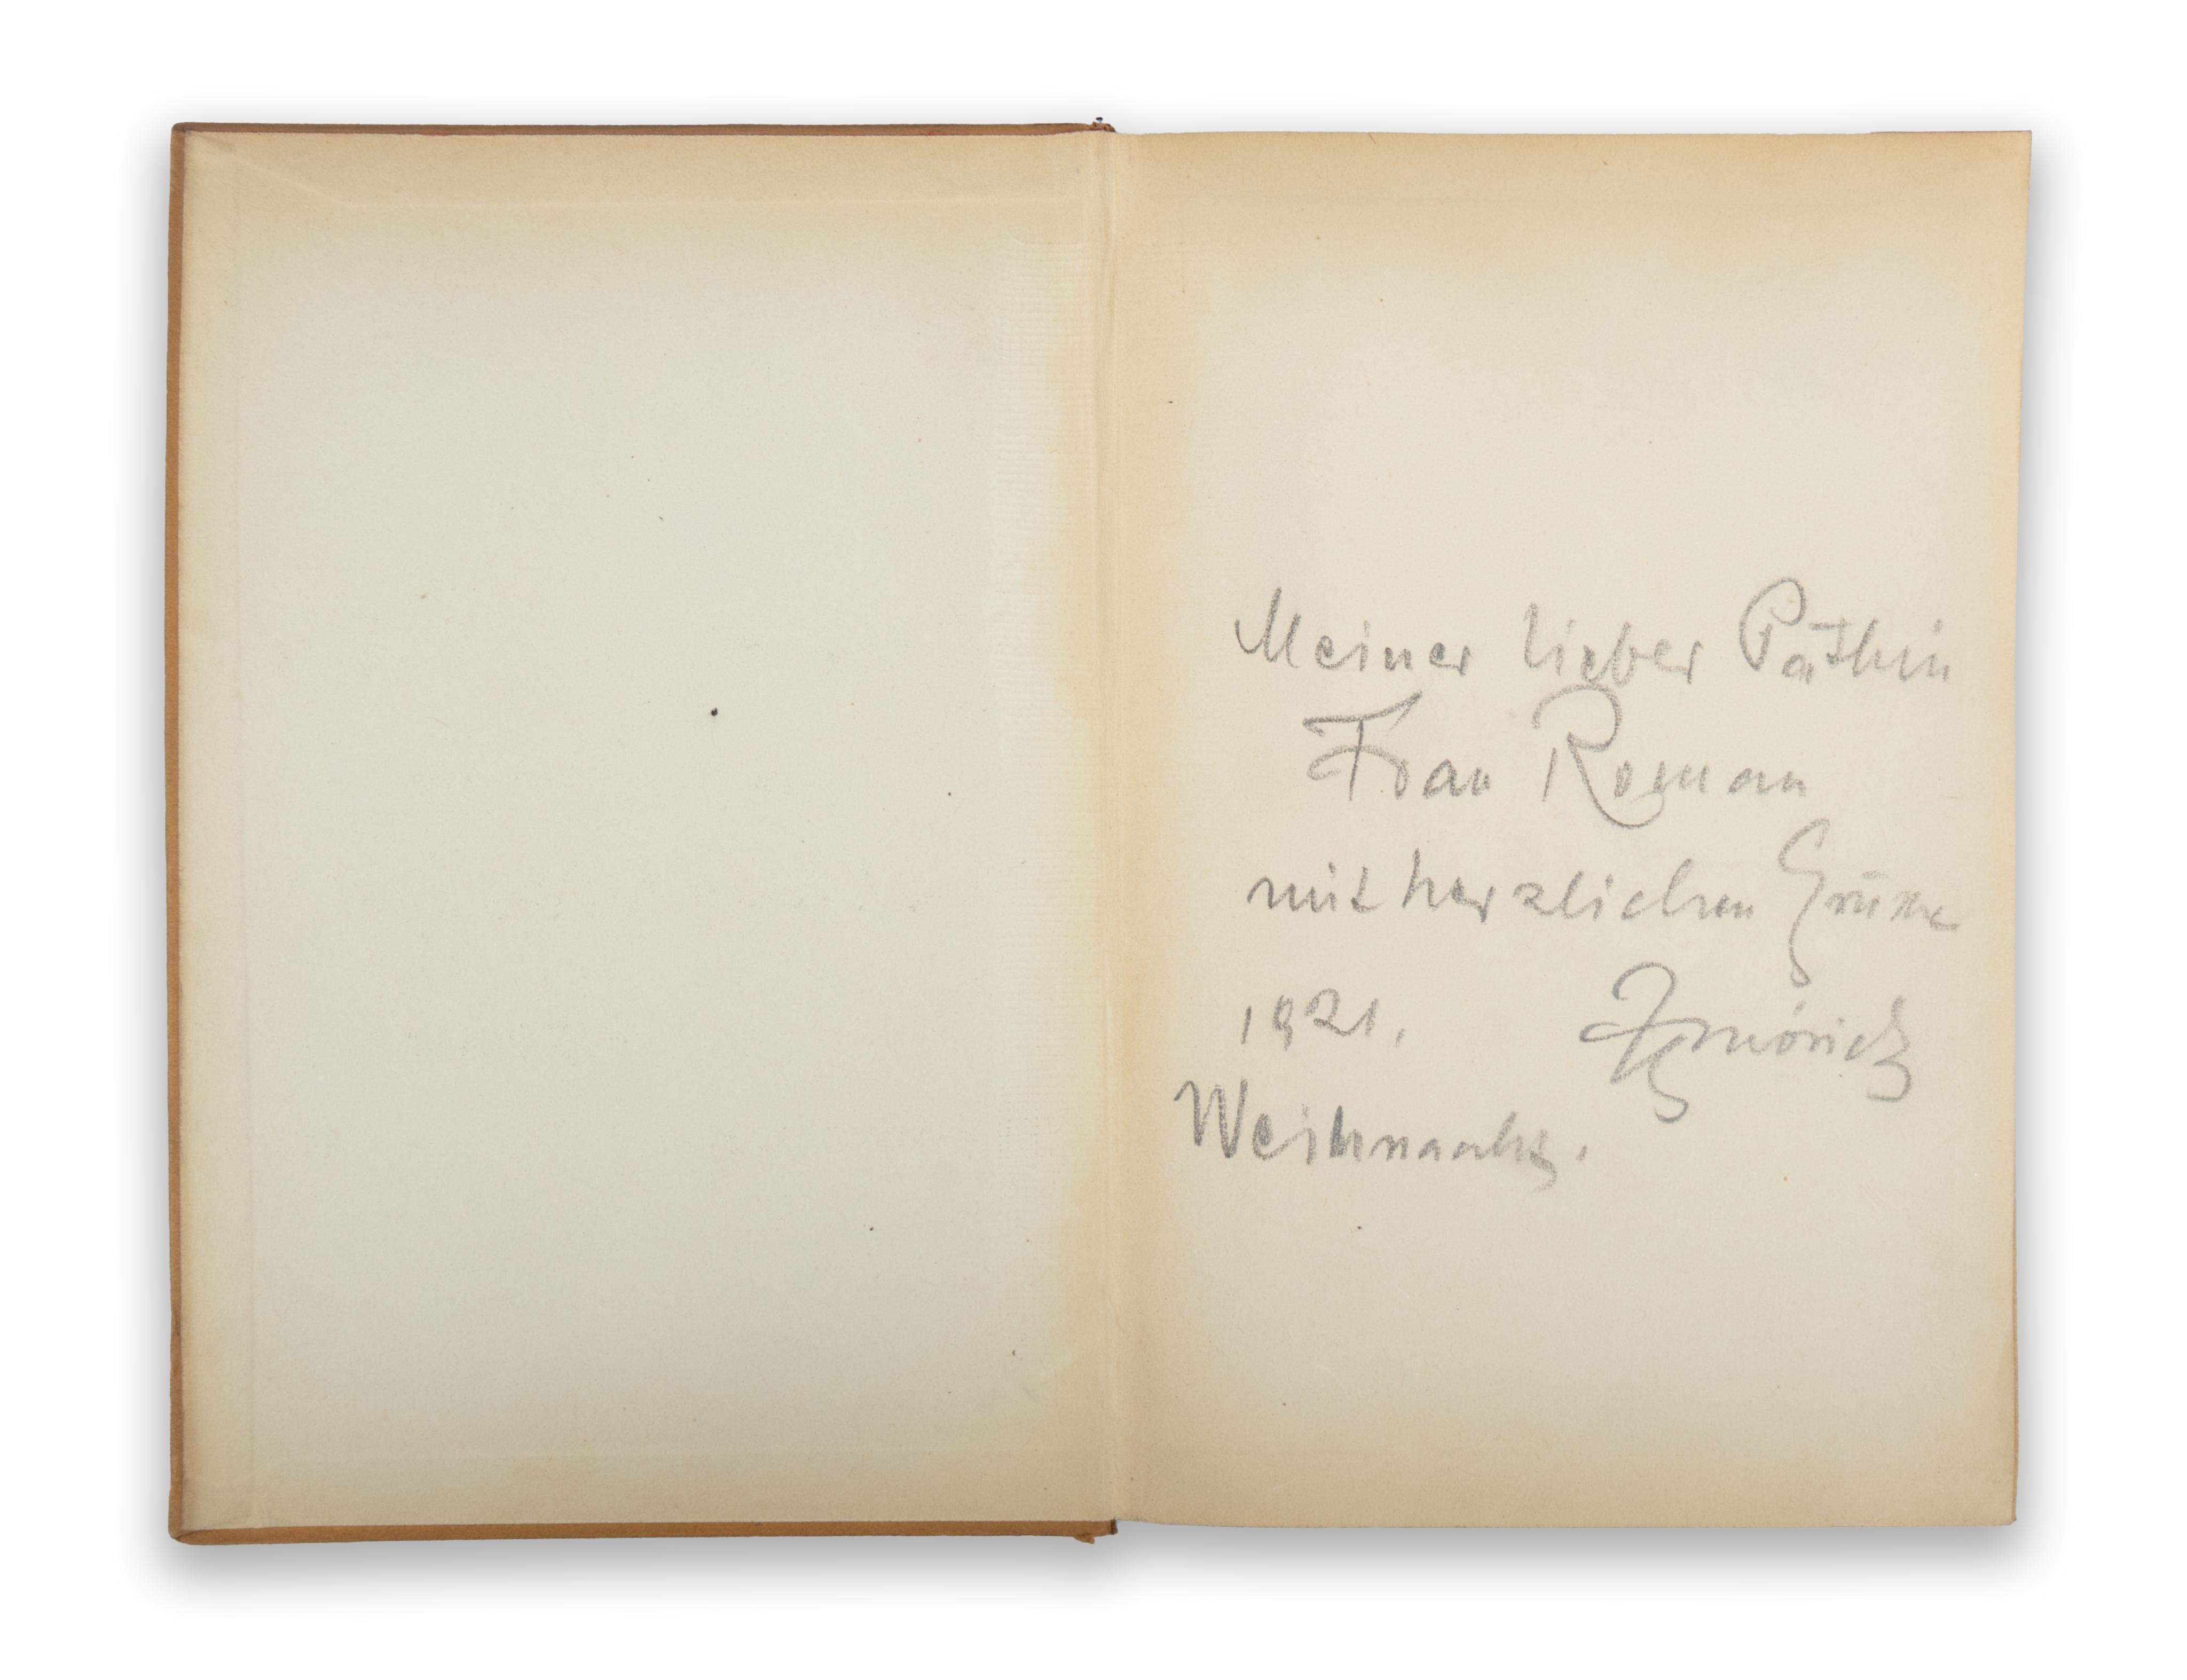 Meiner lieber Päthin
Frau Roman
mit herzlichen Grüsse
1921.
Weihnacht.